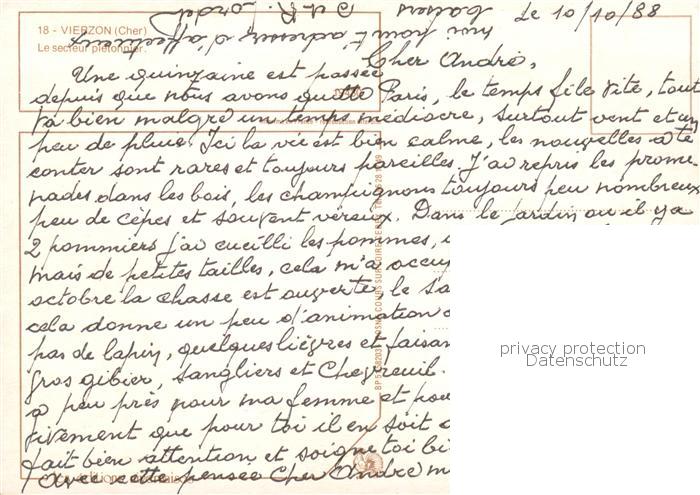 Le 10/10/88
18 - VIERZON (Cher)
Le secteur piétonnier.
Cher André,
Une quinzaine est passée
depuis que nous avons quitté Paris, le temps file vite, tout
va bien malgré un temps médiocre, surtout vent et un
peu de pluie. Ici la vie est bien calme, les nouvelles a te
conter sont rares et toujours pareilles. J'ai repris les prome-
nades dans les bois, les champignons toujours peu nombreux
peu de cèpes et souvent véreux. Dans le jardin ou il y a
2 pommiers j'ai cueilli les pommes,
mais de petites tailles, cela m'a occu
octobre la chasse est ouverte, le
cela donne un peu d'animation
pas de lapin, quelques lièvres et faisan
gros gibier, sangliers et Chevreuil.
a peu près pour ma femme et
vivement que pour toi il en soit
fait bien attention et soigne toi bi
Avec cette pensée Cher André
moi pour t'adresser d'affectueux
baisers
privacy protection
Datenschutz